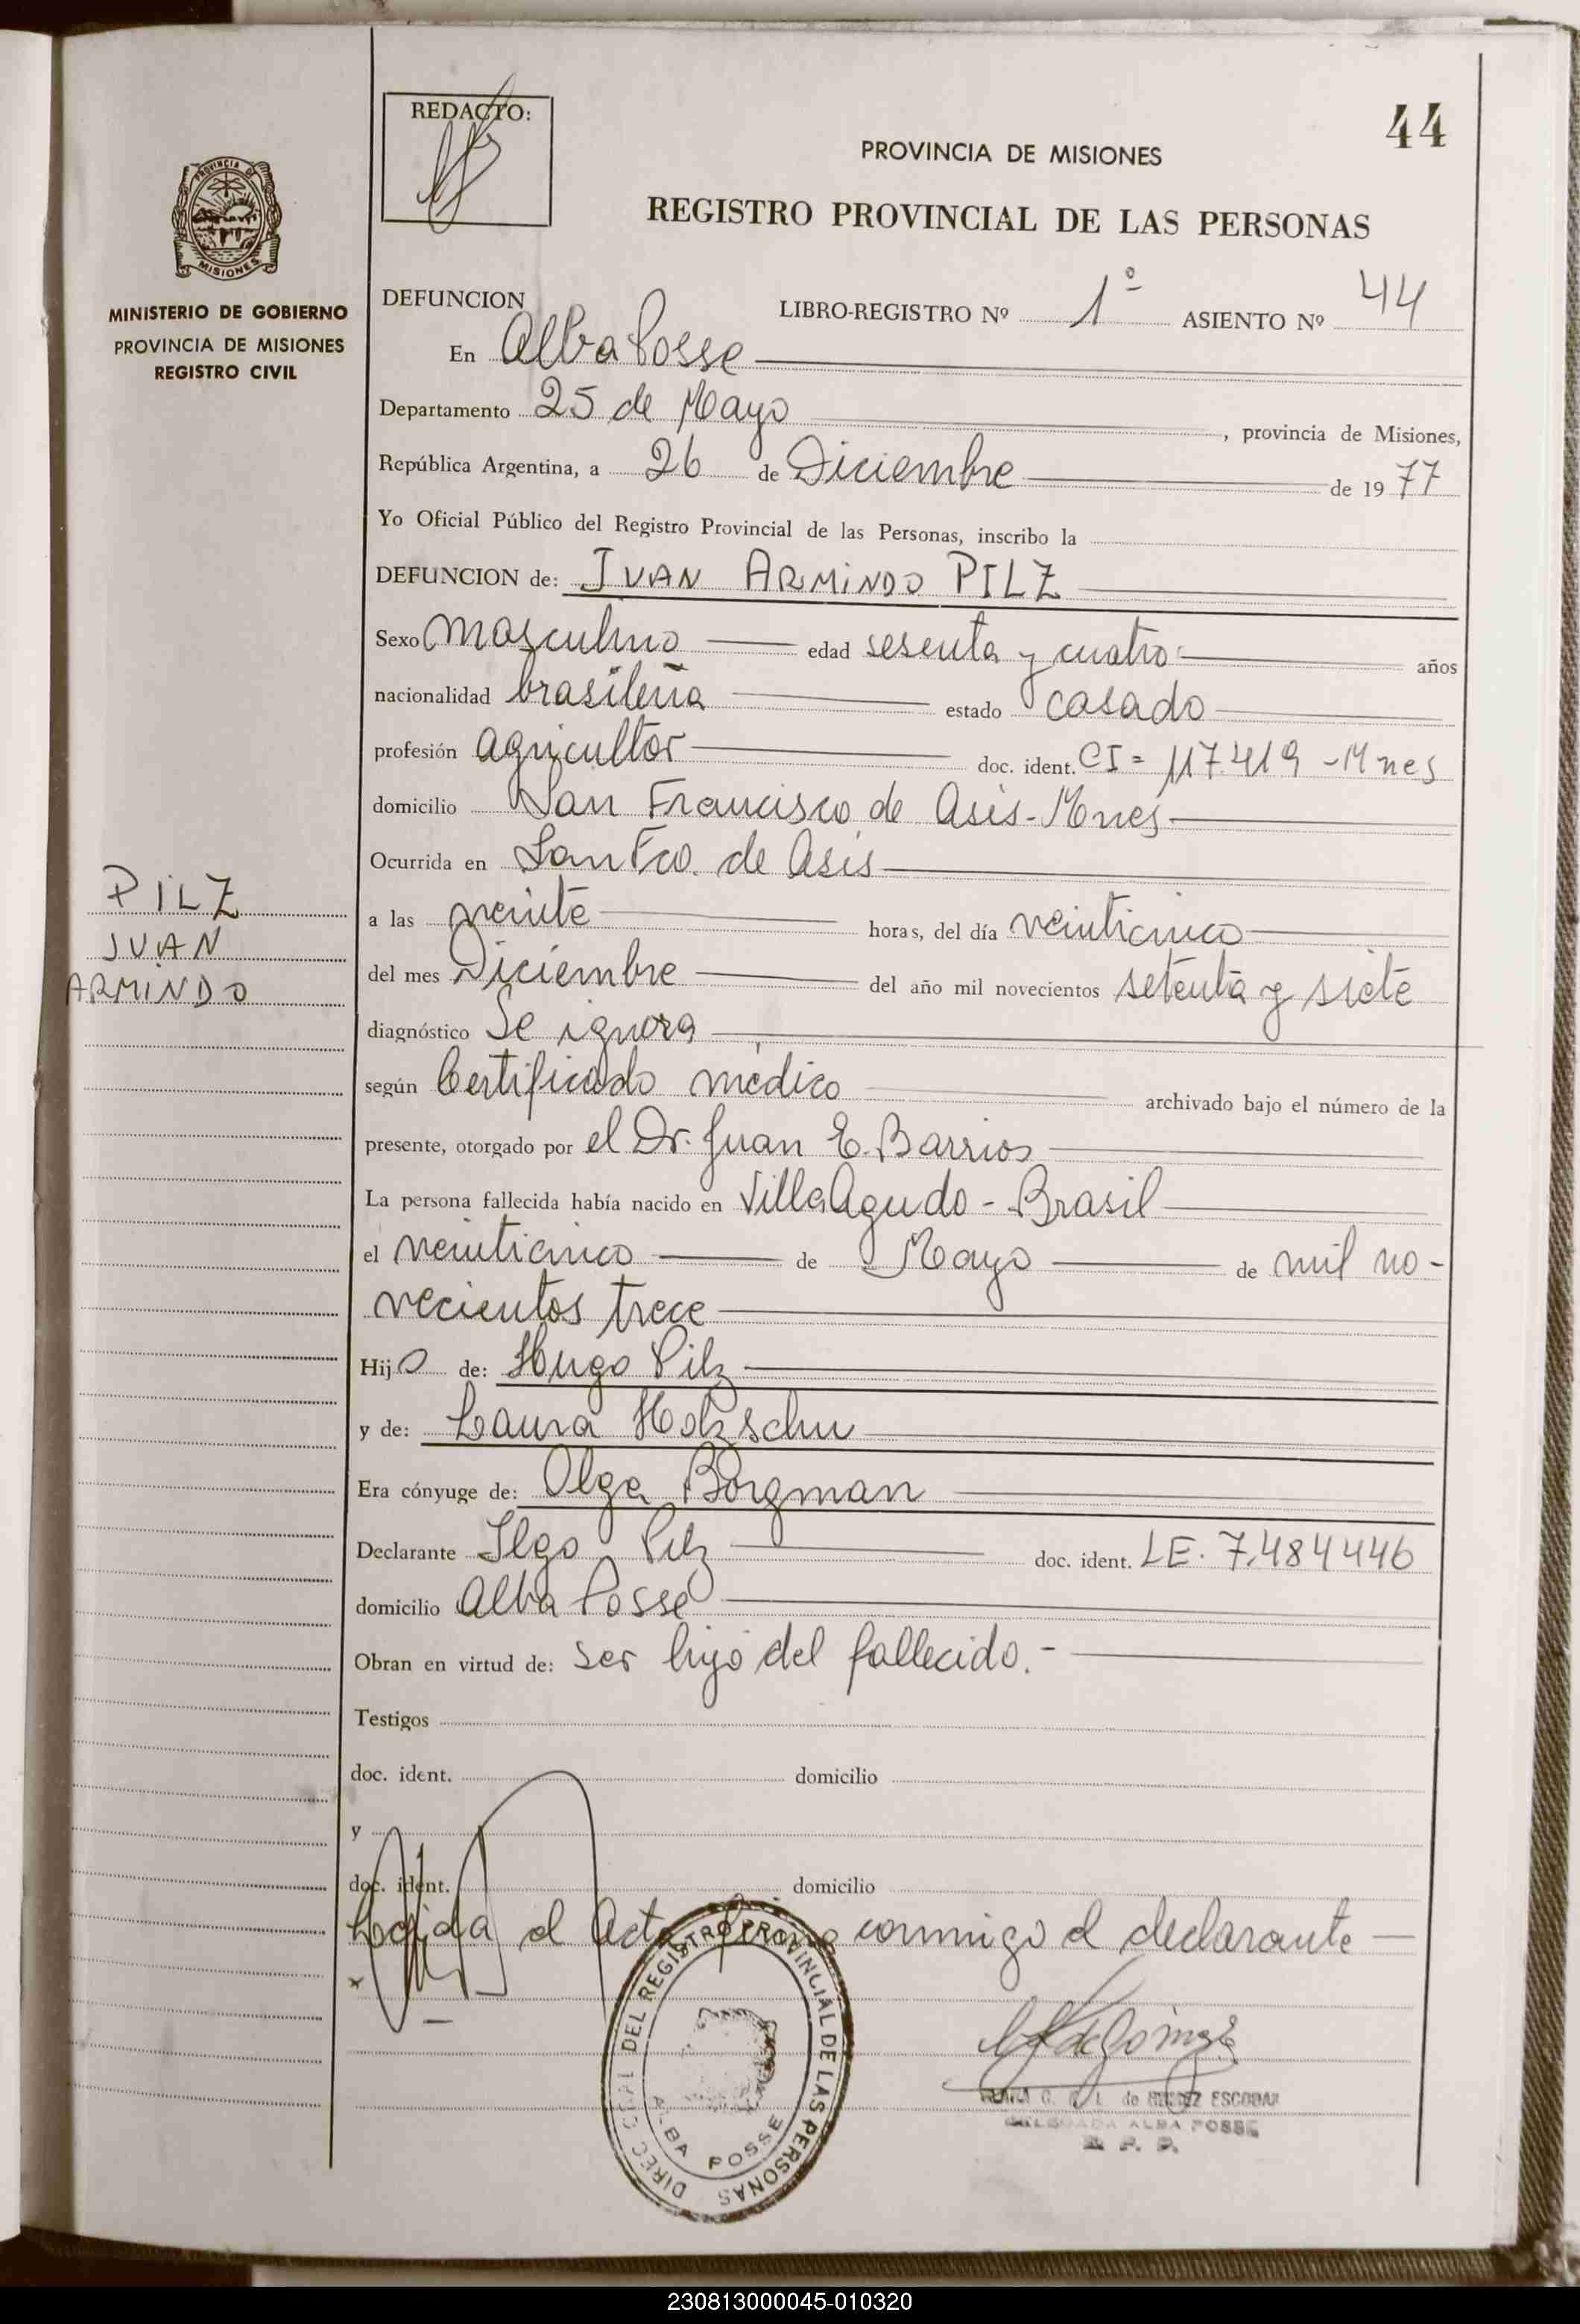 44
REDACTO:
PROVINCIA DE MISIONES
REGISTRO PROVINCIAL DE LAS PERSONAS
PROVINCIA DE
MISIONES
MINISTERIO DE GOBIERNO
PROVINCIA DE MISIONES
REGISTRO CIVIL
DEFUNCION LIBRO-REGISTRO Nº 1º ASIENTO Nº 44
En Alba Posse
Departamento 25 de Mayo, provincia de Misiones,
República Argentina, a 26 de Diciembre de 1977
Yo Oficial Público del Registro Provincial de las Personas, inscribo la
DEFUNCION de: IVAN ARMINDO PILZ
Sexo Masculino edad sesenta y cuatro años
nacionalidad brasileña estado casado
profesión agricultor doc. ident. CI = 117.419 - Mnes
domicilio San Francisco de Asis - Mnes
Ocurrida en San Fco. de Asis
PILZ
IVAN
ARMINDO
a las veinte horas, del día veinticinco
del mes Diciembre del año mil novecientos setenta y siete
diagnóstico Se ignora
según Certificado médico archivado bajo el número de la
presente, otorgado por el Dr. Juan E. Barrios
La persona fallecida había nacido en Villa Agudo - Brasil
el veinticinco de Mayo de mil no-
vecientos trece
Hijo de: Hugo Pilz
y de: Laura Holzschu
Era cónyuge de: Olga Borgman
Declarante Ilgo Pilz doc. ident. LE. 7.484446
domicilio Alba Posse
Obran en virtud de: ser hijo del fallecido.-
Testigos
doc. ident. domicilio
y
doc. ident. domicilio
Leida el Acta firma conmigo el declarante
DEL REGISTRO PROVINCIAL DE LAS PERSONAS
ALBA POSSE
de ESCOBAR
ALBA POSSE
R. P. P.
230813000045-010320